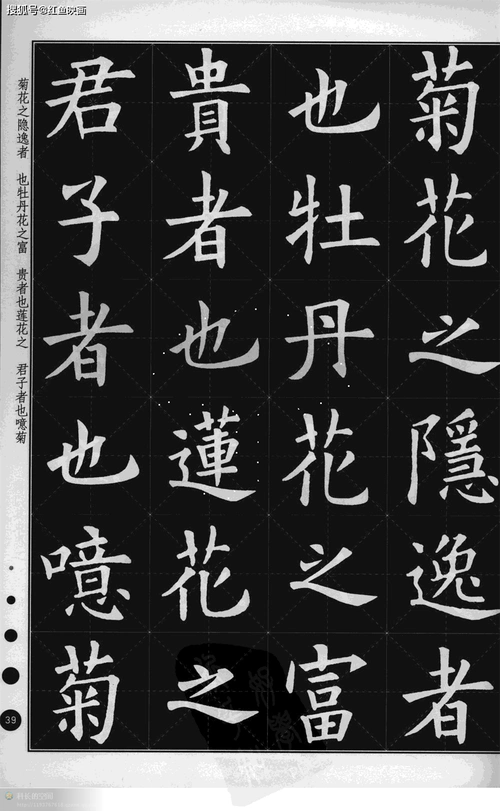 搜狐号@红鱼映画
菊花之隱逸者
也牡丹花之富
貴者也蓮花之
君子者也噫菊
菊花之隐逸者 也牡丹花之富 贵者也莲花之 君子者也噫菊
39